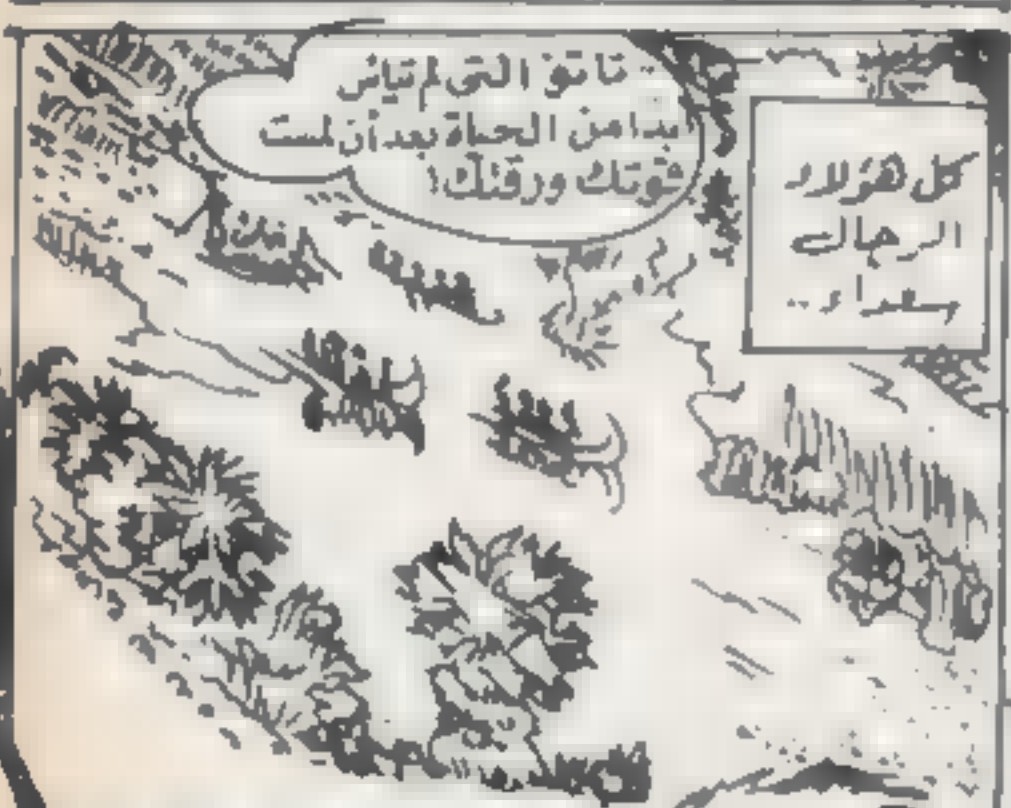 كل هؤلاء
الرجال
سعداء..
التى لم تيأس
أبدا من الحياة بعد أن لمست
قوتك ورقتك!